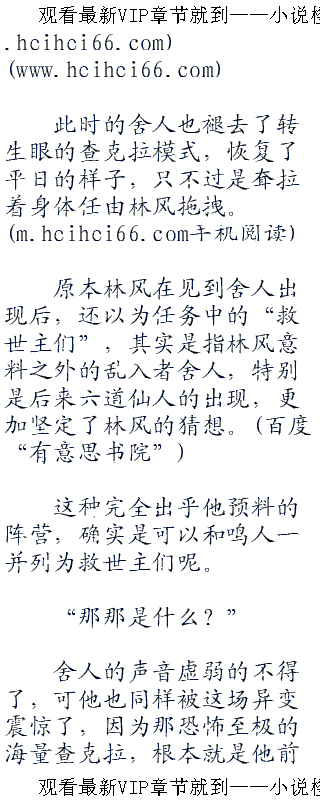 观看最新VIP章节就到——小说检
.hcihci66.com)
(www.hcihci66.com)
此时的舍人也褪去了转
生眼的查克拉模式，恢复了
平日的样子，只不过是耷拉
着身体任由林风拖拽。
(m.hcihci66.com手机阅读)
原本林风在见到舍人出
现后，还以为任务中的“救
世主们”，其实是指林风意
料之外的乱入者舍人，特别
是后来六道仙人的出现，更
加坚定了林风的猜想。(百度
“有意思书院”)
这种完全出乎他预料的
阵营，确实是可以和鸣人一
并列为救世主们呢。
“那那是什么？”
舍人的声音虚弱的不得
了，可他也同样被这场异变
震惊了，因为那恐怖至极的
海量查克拉，根本就是他前
观看最新VIP章节就到——小说检